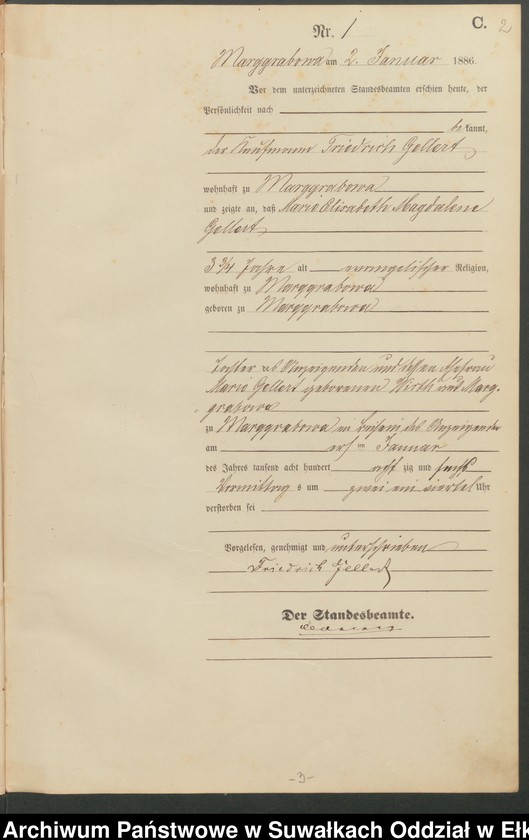 C. 2
Nr. 1
Marggrabowa am 2. Januar 1886.
Vor dem unterzeichneten Standesbeamten erschien heute, der
Persönlichkeit nach
be kannt,
der Kaufmann Friedrich Gellert
wohnhaft zu Marggrabowa
und zeigte an, daß Marie Elisabeth Magdalene
Gellert
3 3/4 Jahre alt evangelischer Religion,
wohnhaft zu Marggrabowa
geboren zu Marggrabowa
Tochter des Anzeigenden und dessen Ehefrau
Marie Gellert geborenen Wirth aus Marg-
grabowa
zu Marggrabowa in Beisein des Anzeigenden
am ersten Januar
des Jahres tausend acht hundert acht zig und sechs
Vormittags um zwei ein viertel Uhr
verstorben sei
Vorgelesen, genehmigt und unterschrieben
Friedrich Gellert
Der Standesbeamte.
-3-
Archiwum Państwowe w Suwałkach Oddział w Ełk